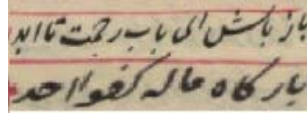 باز باش ای باب رحمت تا ابد
بارگاه ما له کفوا احد